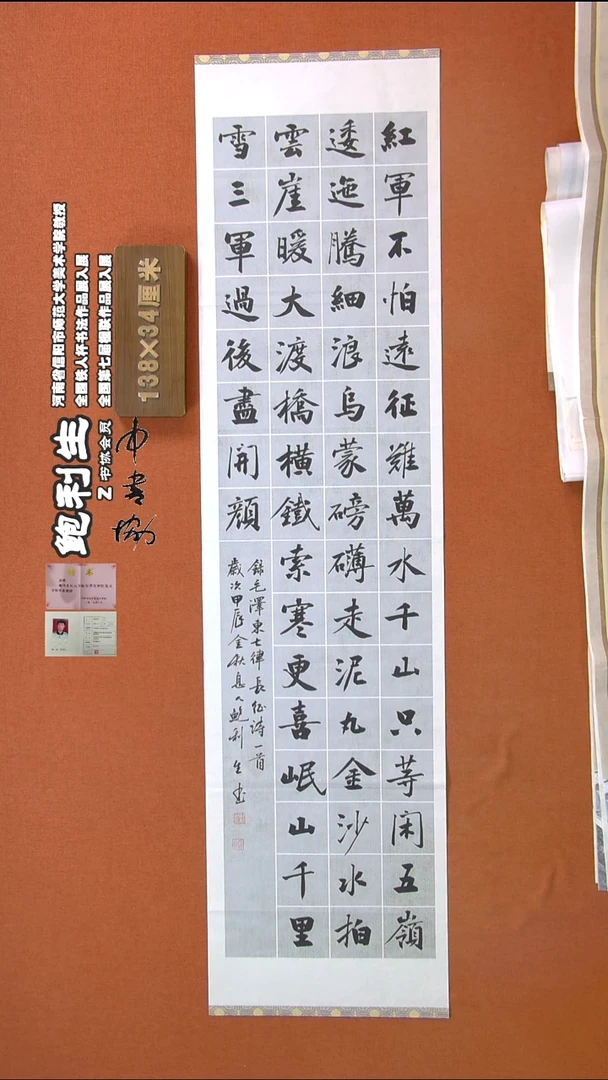 紅軍不怕遠征難萬水千山只等闲五嶺
逶迤騰細浪烏蒙磅礴走泥丸金沙水拍
雲崖暖大渡橋橫鐵索寒更喜岷山千里
雪三軍過後盡開顏
錄毛澤東七律長征詩一首
歲次甲辰金秋息人鮑利生书
138×34厘米
河南省信阳市师范大学美术学院教授
全国铁人杯书法作品展入展
全国第七届楹联作品展入展
鲍利生
Z书协会员
中书协